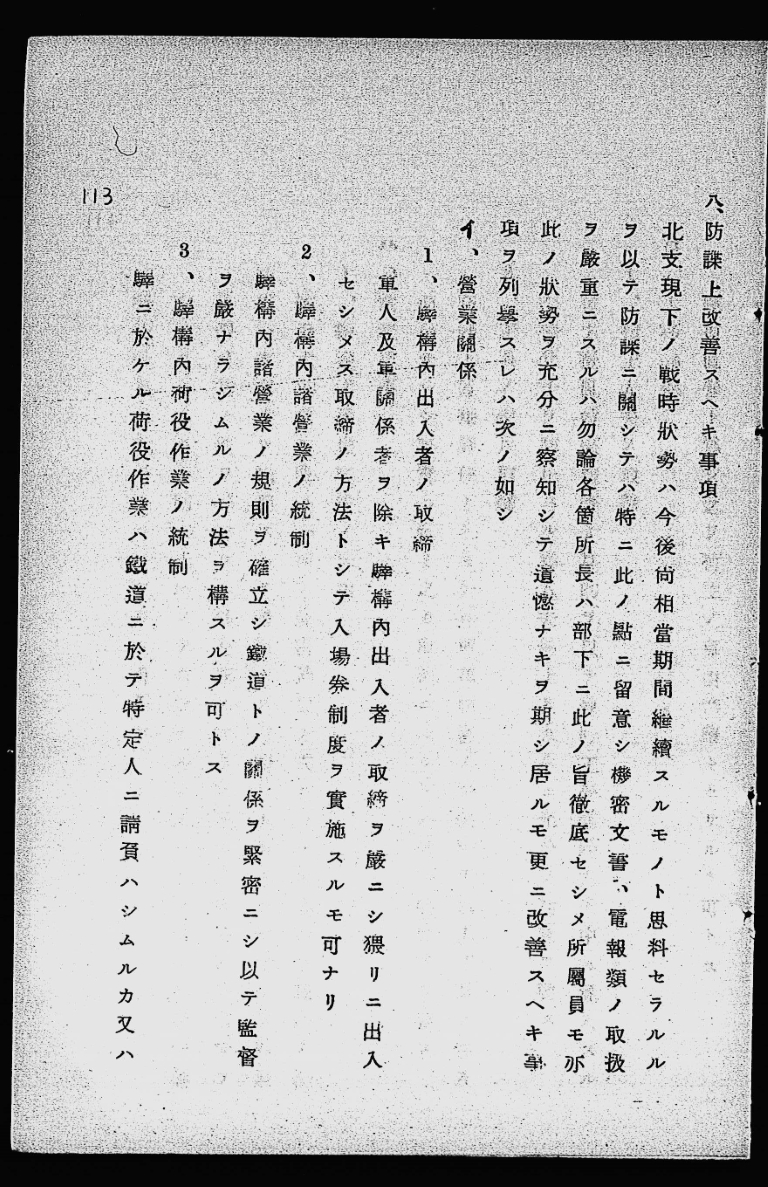 八、防諜上改善スヘキ事項
北支現下ノ戰時狀勢ハ今後尙相當期間繼續スルモノト思料セラルル
ヲ以テ防諜ニ關シテハ特ニ此ノ點ニ留意シ機密文書、電報類ノ取扱
ヲ嚴重ニスルハ勿論各箇所長ハ部下ニ此ノ旨徹底セシメ所屬員モ亦
此ノ狀勢ヲ充分ニ察知シテ遺憾ナキヲ期シ居ルモ更ニ改善スヘキ事
項ヲ列擧スレハ次ノ如シ
イ、營業關係
1、驛構內出入者ノ取締
軍人及軍關係者ヲ除キ驛構內出入者ノ取締ヲ嚴ニシ猥リニ出入
セシメス取締ノ方法トシテ入場券制度ヲ實施スルモ可ナリ
2、驛構內諸營業ノ統制
驛構內諸營業ノ規則ヲ確立シ鐵道トノ關係ヲ緊密ニシ以テ監督
ヲ嚴ナラシムルノ方法ヲ構スルヲ可トス
3、驛構內荷役作業ノ統制
驛ニ於ケル荷役作業ハ鐵道ニ於テ特定人ニ請負ハシムルカ又ハ
113